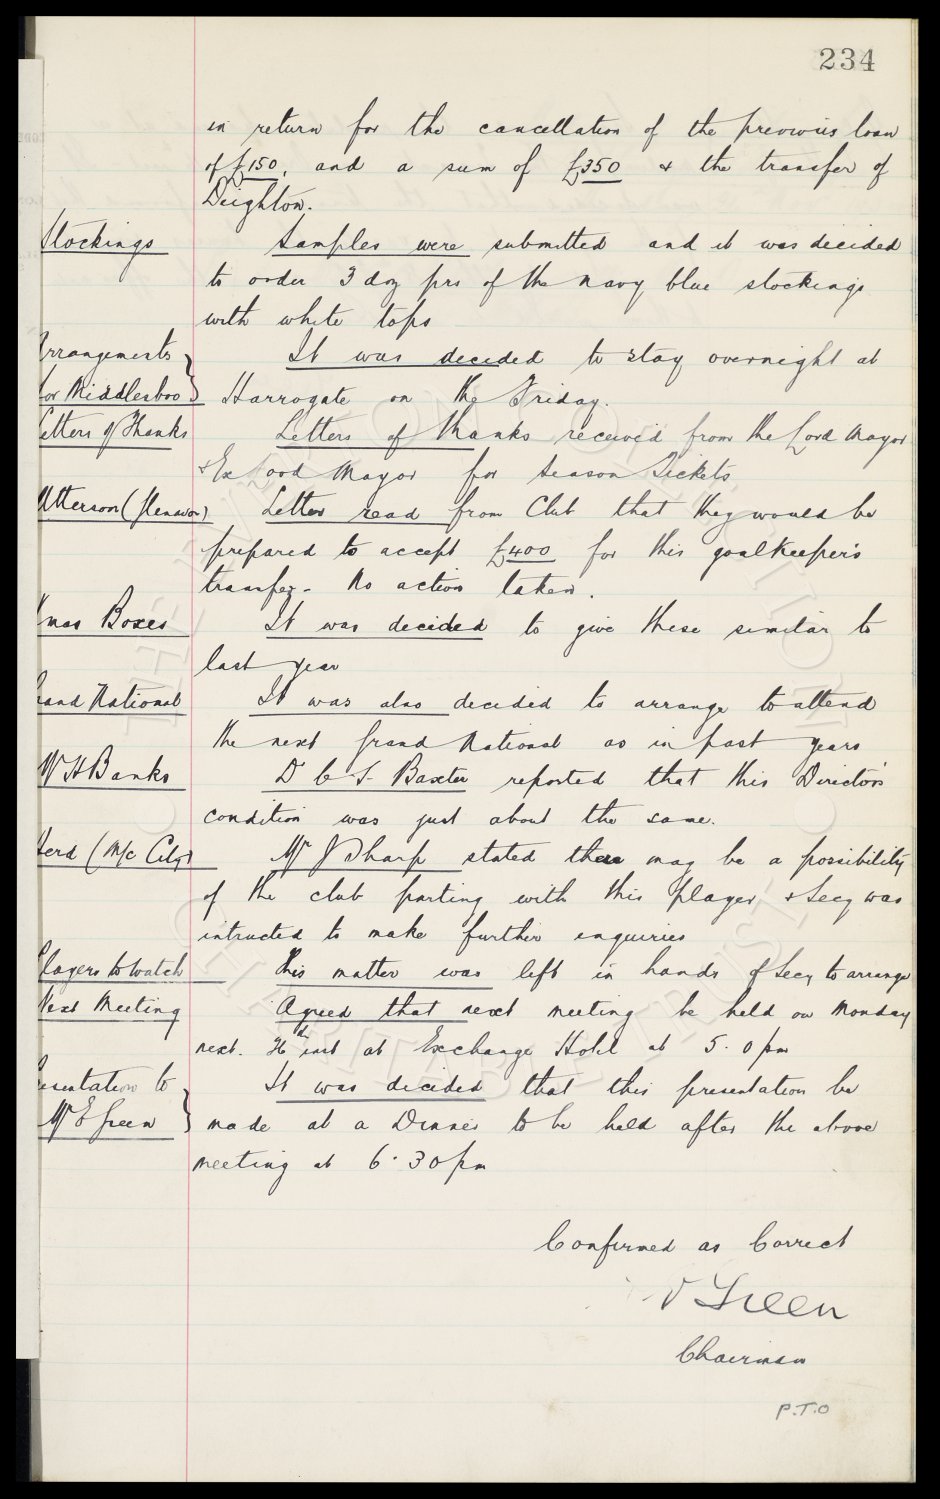 234
in return for the cancellation of the previous loan
of £150, and a sum of £350 & the transfer of
Deighton.
Stockings Samples were submitted and it was decided
to order 3 doz prs of the navy blue stockings
with white tops
Arrangements It was decided to stay overnight at
for Middlesboro } Harrogate on the Friday.
Letters of Thanks Letters of thanks received from the Lord Mayor
& Ex Lord Mayor for Season Tickets
Utterson (Glenavon) Letter read from Club that they would be
prepared to accept £400 for this goalkeeper's
transfer. No action taken.
Xmas Boxes It was decided to give these similar to
last year
Grand National It was also decided to arrange to attend
the next Grand National as in past years
W H Banks D C S Baxter reported that this Director's
condition was just about the same.
Herd (M/c City) Mr J Sharp stated there may be a possibility
of the club parting with this player & Secy was
intructed to make further inquiries
Players to watch This matter was left in hands of Secy to arrange
Next Meeting Agreed that next meeting be held on Monday
next. inst at Exchange Hotel at 5.0 pm
Presentation to It was decided that this presentation be
Mr E Green } made at a Dinner to be held after the above
meeting at 6.30 pm
Confirmed as Correct
Green
Chairman
P.T.O
THE EVERTON COLLECTION CHARITABLE TRUST